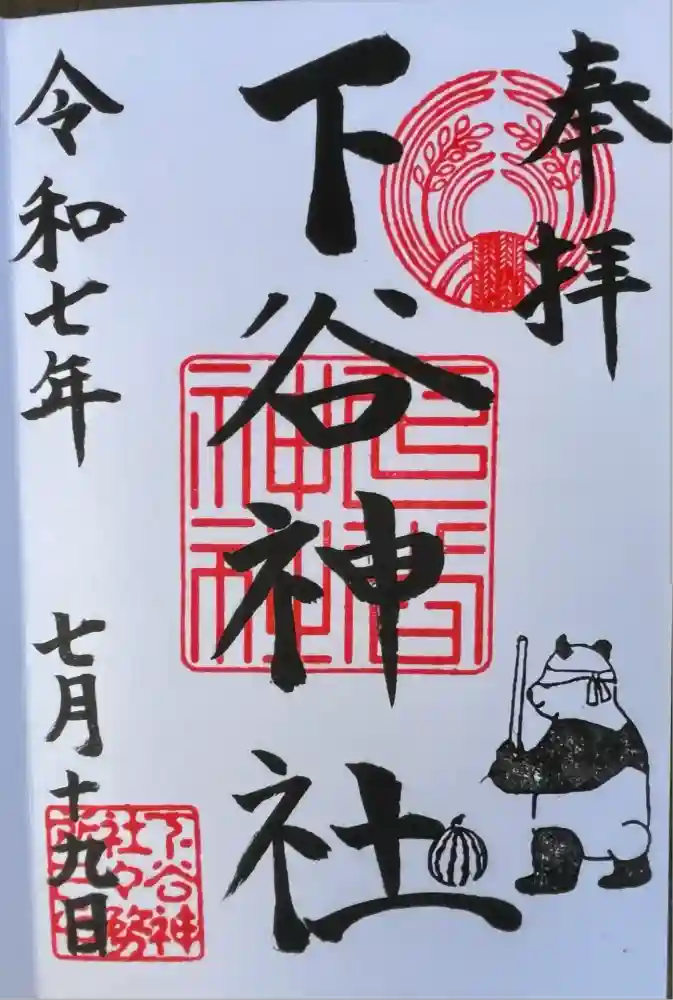 奉拝
下谷神社
令和七年 七月十九日
下谷神
社々務
所之印